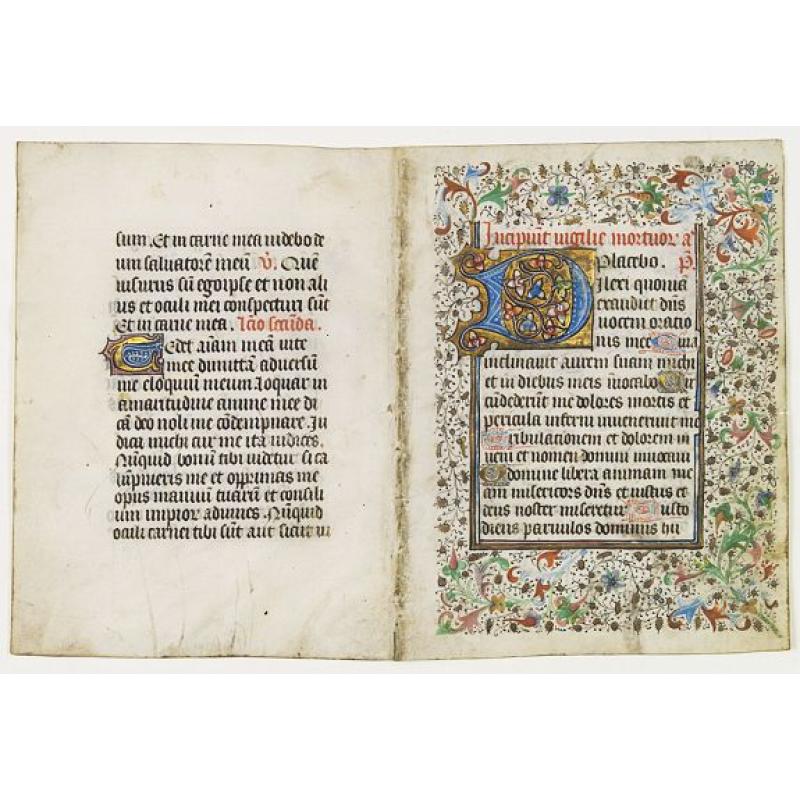 sum. Et in carne mea videbo de
um salvatorē meū V. Quē
visurus sū egoipse et non ali
us et oculi mei conspecturi sūt
Et in carne mea. Lc̄io scūda.
Tedet aīam meā vite
mee dimittā adversū
me eloquiū meum loquar in
amaritudine anime mee di
cā deo noli me cōdempnare. In
dica michi cur me ita iudices.
Nūquid bonū tibi videtur si ca
lūpnieris me et opprimas me
opus manuū tuarū et consili
um impior adiuves. Nūquid
oculi carnei tibi sūt aut sicut vi
Incipiūt vigilie mortuor a
Placebo. P.
Dilexi quonia
exaudiet dn̄s
vocem oratio
nis mee Quia
inclinavit aurem suam michi
et in diebus meis invocabo Cir
cūdederūt me dolores mortis et
pericula inferni invenerunt me
Tribulationem et dolorem in
veni et nomen domini invocavi
O domine libera animam me
am misericors dn̄s et iustus et
deus noster miseretur Custo
diens parvulos dominus hu